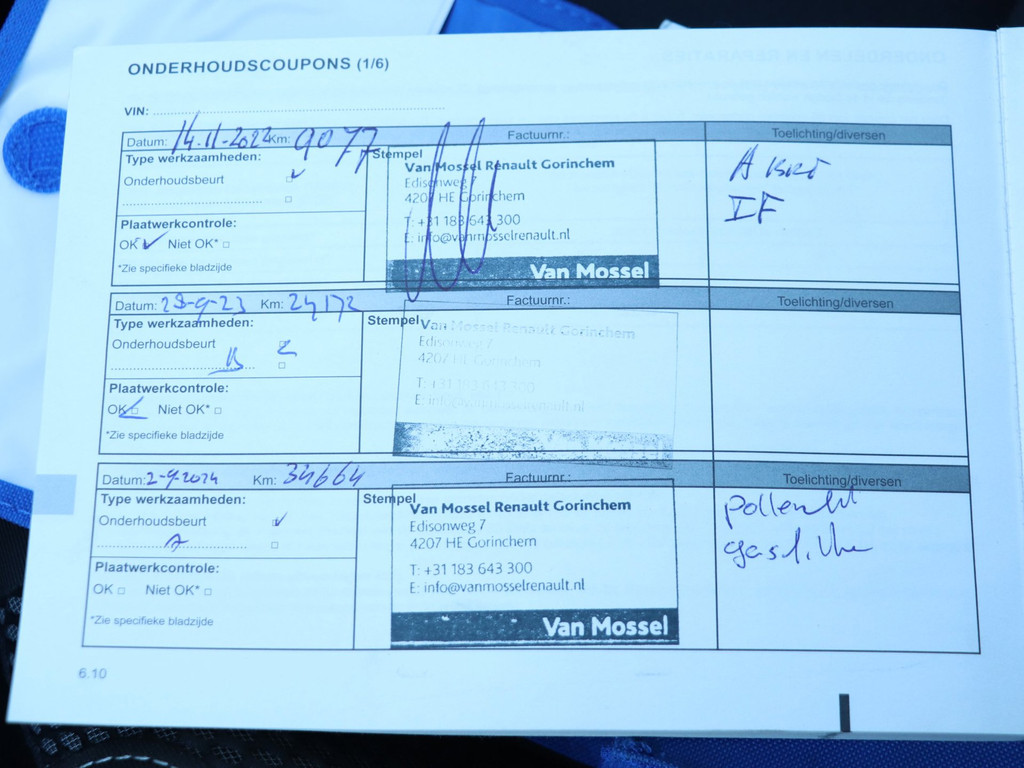 ONDERHOUDSCOUPONS (1/6)
VIN:
Datum: 14-11-2022 Km: 9077 Factuurnr.: Toelichting/diversen
Type werkzaamheden:
Stempel
Onderhoudsbeurt
Van Mossel Renault Gorinchem
Edisonweg 7
4207 HE Gorinchem
T: +31 183 643 300
E: info@vanmosselrenault.nl
Van Mossel
Plaatwerkcontrole:
OK Niet OK*
*Zie specifieke bladzijde
A
IF
Datum: 29-9-23 Km: 24172 Factuurnr.: Toelichting/diversen
Type werkzaamheden:
Stempel
Onderhoudsbeurt
B
Van Mossel Renault Gorinchem
Edisonweg 7
4207 HE Gorinchem
T: +31 183 643 300
E: info@vanmosselrenault.nl
Plaatwerkcontrole:
OK Niet OK*
*Zie specifieke bladzijde
Datum: 2-9-2024 Km: 34664 Factuurnr.: Toelichting/diversen
Type werkzaamheden:
Stempel
Onderhoudsbeurt
A
Van Mossel Renault Gorinchem
Edisonweg 7
4207 HE Gorinchem
T: +31 183 643 300
E: info@vanmosselrenault.nl
Van Mossel
Plaatwerkcontrole:
OK Niet OK*
*Zie specifieke bladzijde
6.10